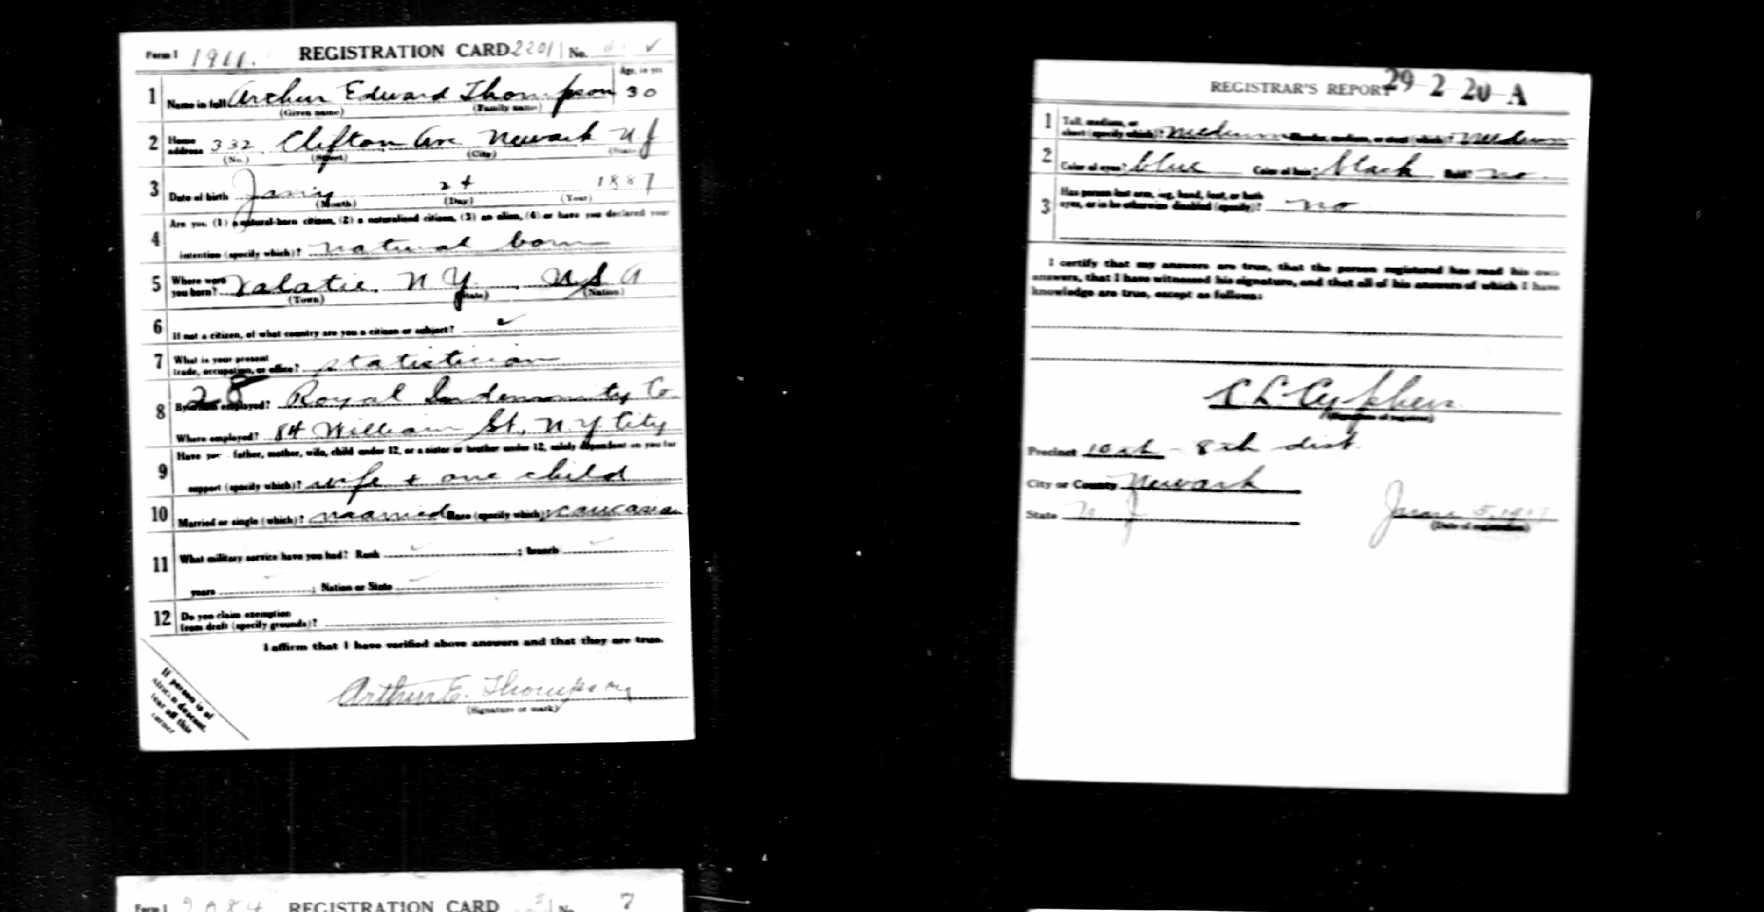 Form 1 1911. REGISTRATION CARD 2201 No. ✓
Age, in yrs
1 Name in full Arthur Edward Thompson 30
(Given name) (Family name)
2 Home address 332 Clifton Ave Newark N J
(No.) (Street) (City) (State)
3 Date of birth Jan'y 24 1887
(Month) (Day) (Year)
4 Are you (1) a natural-born citizen, (2) a naturalized citizen, (3) an alien, (4) or have you declared your
intention (specify which)? natural born
5 Where were you born? Valatie N Y U S A
(Town) (State) (Nation)
6 If not a citizen, of what country are you a citizen or subject? ✓
7 What is your present trade, occupation, or office? statistician
28
8 By whom employed? Royal Indemnity Co
Where employed? 84 William St, N Y City
9 Have you father, mother, wife, child under 12, or a sister or brother under 12, solely dependent on you for
support (specify which)? wife + one child
10 Married or single (which)? married Race (specify which)? Caucasian
11 What military service have you had? Rank ✓ ; branch ✓
years ; Nation or State ✓
12 Do you claim exemption from draft (specify grounds)?
I affirm that I have verified above answers and that they are true.
Arthur E. Thompson
(Signature or mark)
If person is of
African descent,
tear off this
corner
REGISTRAR'S REPORT 29 2 20 A
1 Tall, medium, or short (specify which)? medium Slender, medium, or stout (which)? medium
2 Color of eyes? blue Color of hair? black Bald? no
3 Has person lost arm, leg, hand, foot, or both
eyes, or is he otherwise disabled (specify)? no
I certify that my answers are true, that the person registered has read his own
answers, that I have witnessed his signature, and that all of his answers of which I have
knowledge are true, except as follows:
(Signature of registrar)
Precinct 10th - 8th dist.
City or County Newark
State N J June 5, 1917
(Date of registration)
Form 1 2084 REGISTRATION CARD No. 7